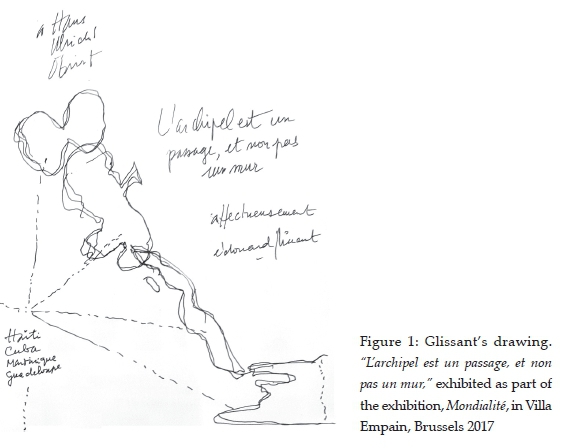 à Hans
Ulrich
Obrist
L'archipel est un
passage, et non pas
un mur
affectueusement
édouard glissant
Haïti
Cuba
Martinique
Guadeloupe
Figure 1: Glissant's drawing.
"L'archipel est un passage, et non
pas un mur," exhibited as part of
the exhibition, Mondialité, in Villa
Empain, Brussels 2017